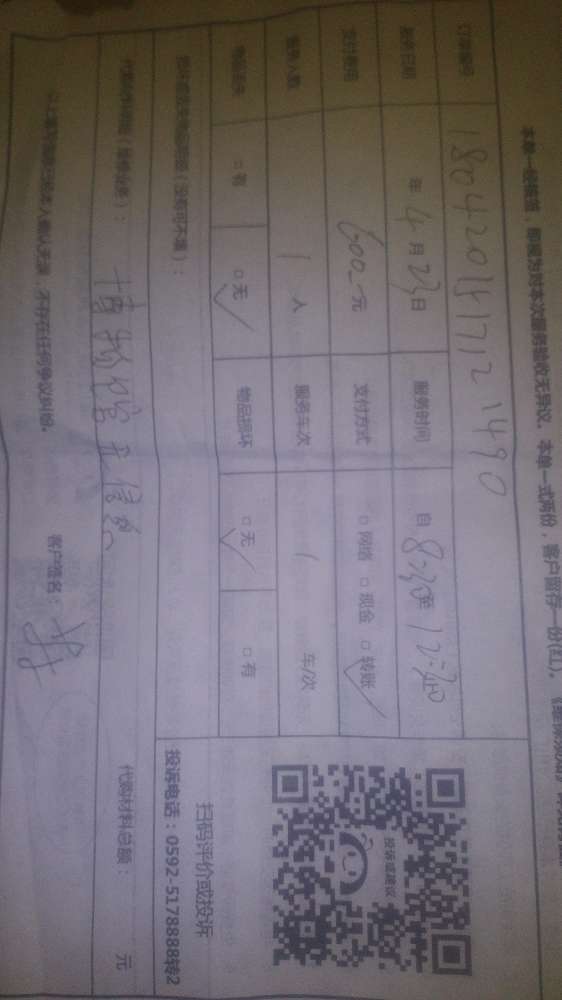 本单一经接洽,即视为对本次服务验收无异议。本单一式两份,客户留存一份(红)。
订单编号 1804201517121490
服务日期 年 4 月 23 日 服务时间 自 8:30 至 12:30
支付费用 600 元 支付方式 □ 网络 □ 现金 □ 转账 ✓
服务人数 1 人 服务车次 1 车/次
物品丢失 □ 有 □ 无 ✓ 物品损坏 □ 无 ✓ □ 有
损坏或丢失物品明细(没有可不填):
代购材料明细(维修业务): 代购材料总额: 元
以上填写情况已经本人确认无误,不存在任何争议纠纷。 客户签名:
投诉或建议
扫码评价或投诉
投诉电话:0592-5178888转2